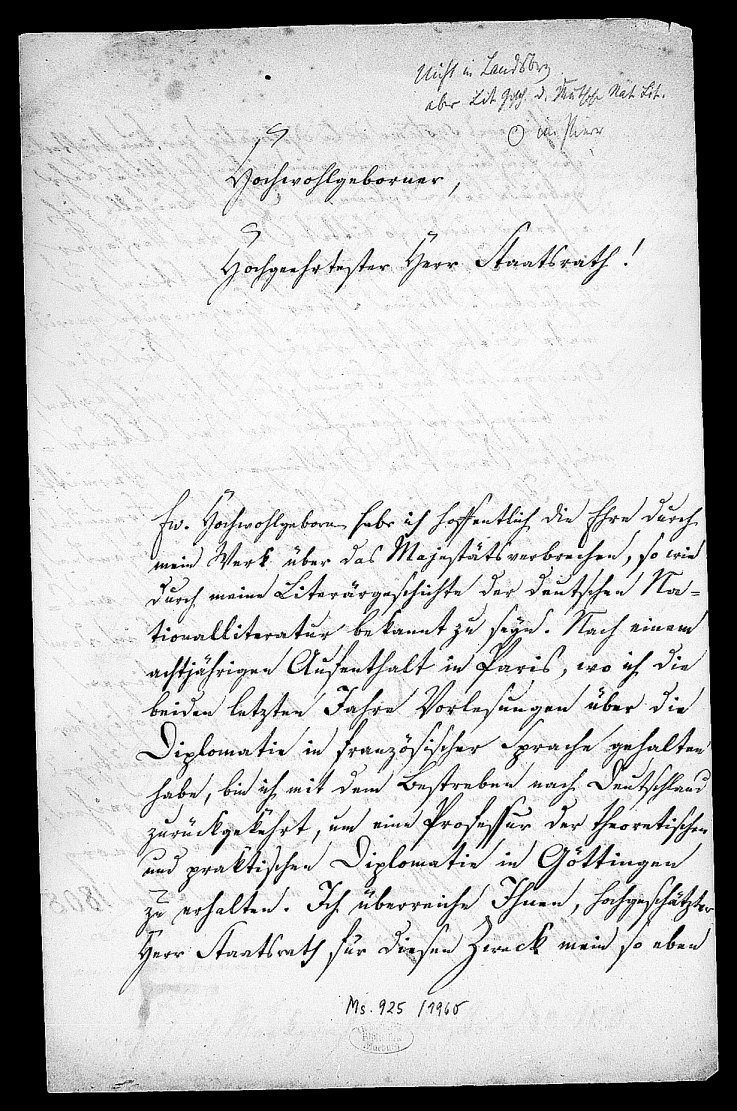 Nicht in Landsberg
aber Lit. Gesch. d. deutsche Nat. Lit.
Hochwohlgeborner,
Hochgeehrtester Herr Staatsrath!
Ew. Hochwohlgeborn habe ich hoffentlich die Ehre durch
mein Werk über das Majestätsverbrechen, so wie
durch meine Literärgeschichte der deutschen Na-
tionalliteratur bekannt zu seyn. Nach einem
achtjährigen Aufenthalt in Paris, wo ich die
beiden letzten Jahre Vorlesungen über die
Diplomatie in französischer Sprache gehalten
habe, bin ich mit dem Bestreben nach Deutschland
zurückgekehrt, um eine Professur der theoretischen
und praktischen Diplomatie in Göttingen
zu erhalten. Ich überreiche Ihnen, hochgeschätzter
Herr Staatsrath für diesen Zweck mein so eben
Ms. 925 / 1960